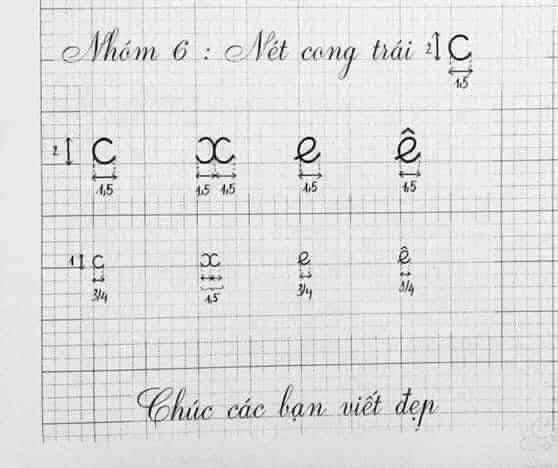 Nhóm 6 : Nét cong trái 2 c
1,5
2 c x e ê
1,5 1,5 1,5 1,5 1,5
1 c x e ê
3/4 1,5 3/4 3/4
Chúc các bạn viết đẹp